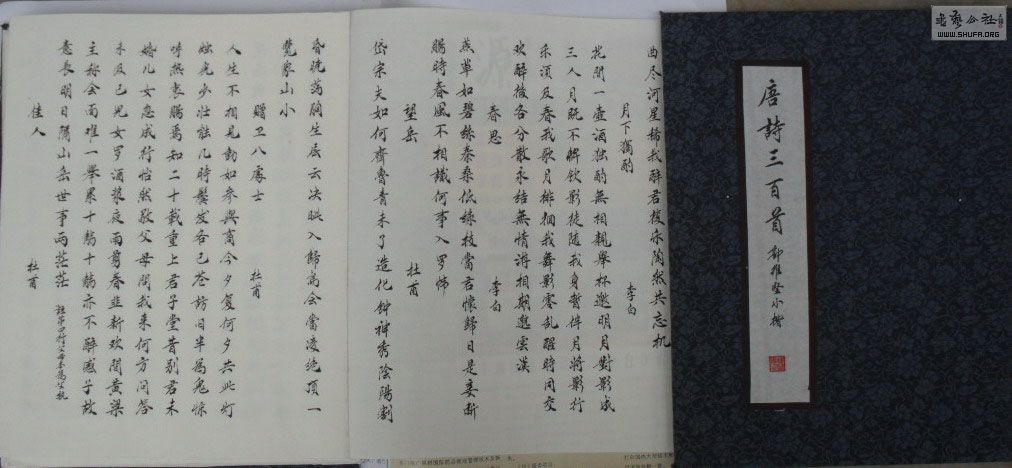 書藝公社
WWW.SHUFA.ORG
唐詩三百首
小楷
曲尽河星稀我醉君復乐陶然共忘机
月下獨酌 李白
花間一壺酒独酌無相親舉杯邀明月對影成
三人月既不解飲影徒随我身暫伴月將影行
乐須及春我歌月徘徊我舞影零乱醒時同交
欢醉後各分散永结無情游相期邈雲漢
春思 李白
燕草如碧絲秦桑低綠枝當君懷歸日是妾断
腸時春風不相識何事入罗帏
望岳 杜甫
岱宗夫如何齊魯青未了造化钟神秀陰陽割
昏晓荡胸生层云决眦入歸鸟会當凌绝顶一
覽眾山小
赠卫八處士 杜甫
人生不相見動如参與商今夕复何夕共此灯
烛光少壮能几時鬓发各已苍访旧半為鬼惊
呼热衷腸焉知二十载重上君子堂昔别君未
婚儿女忽成行怡然敬父母問我来何方问答
未及已儿女罗酒浆夜雨剪春韭新炊間黄粱
主称会面难一举累十觞十觞亦不醉感子故
意長明日隔山岳世事两茫茫
佳人 杜甫